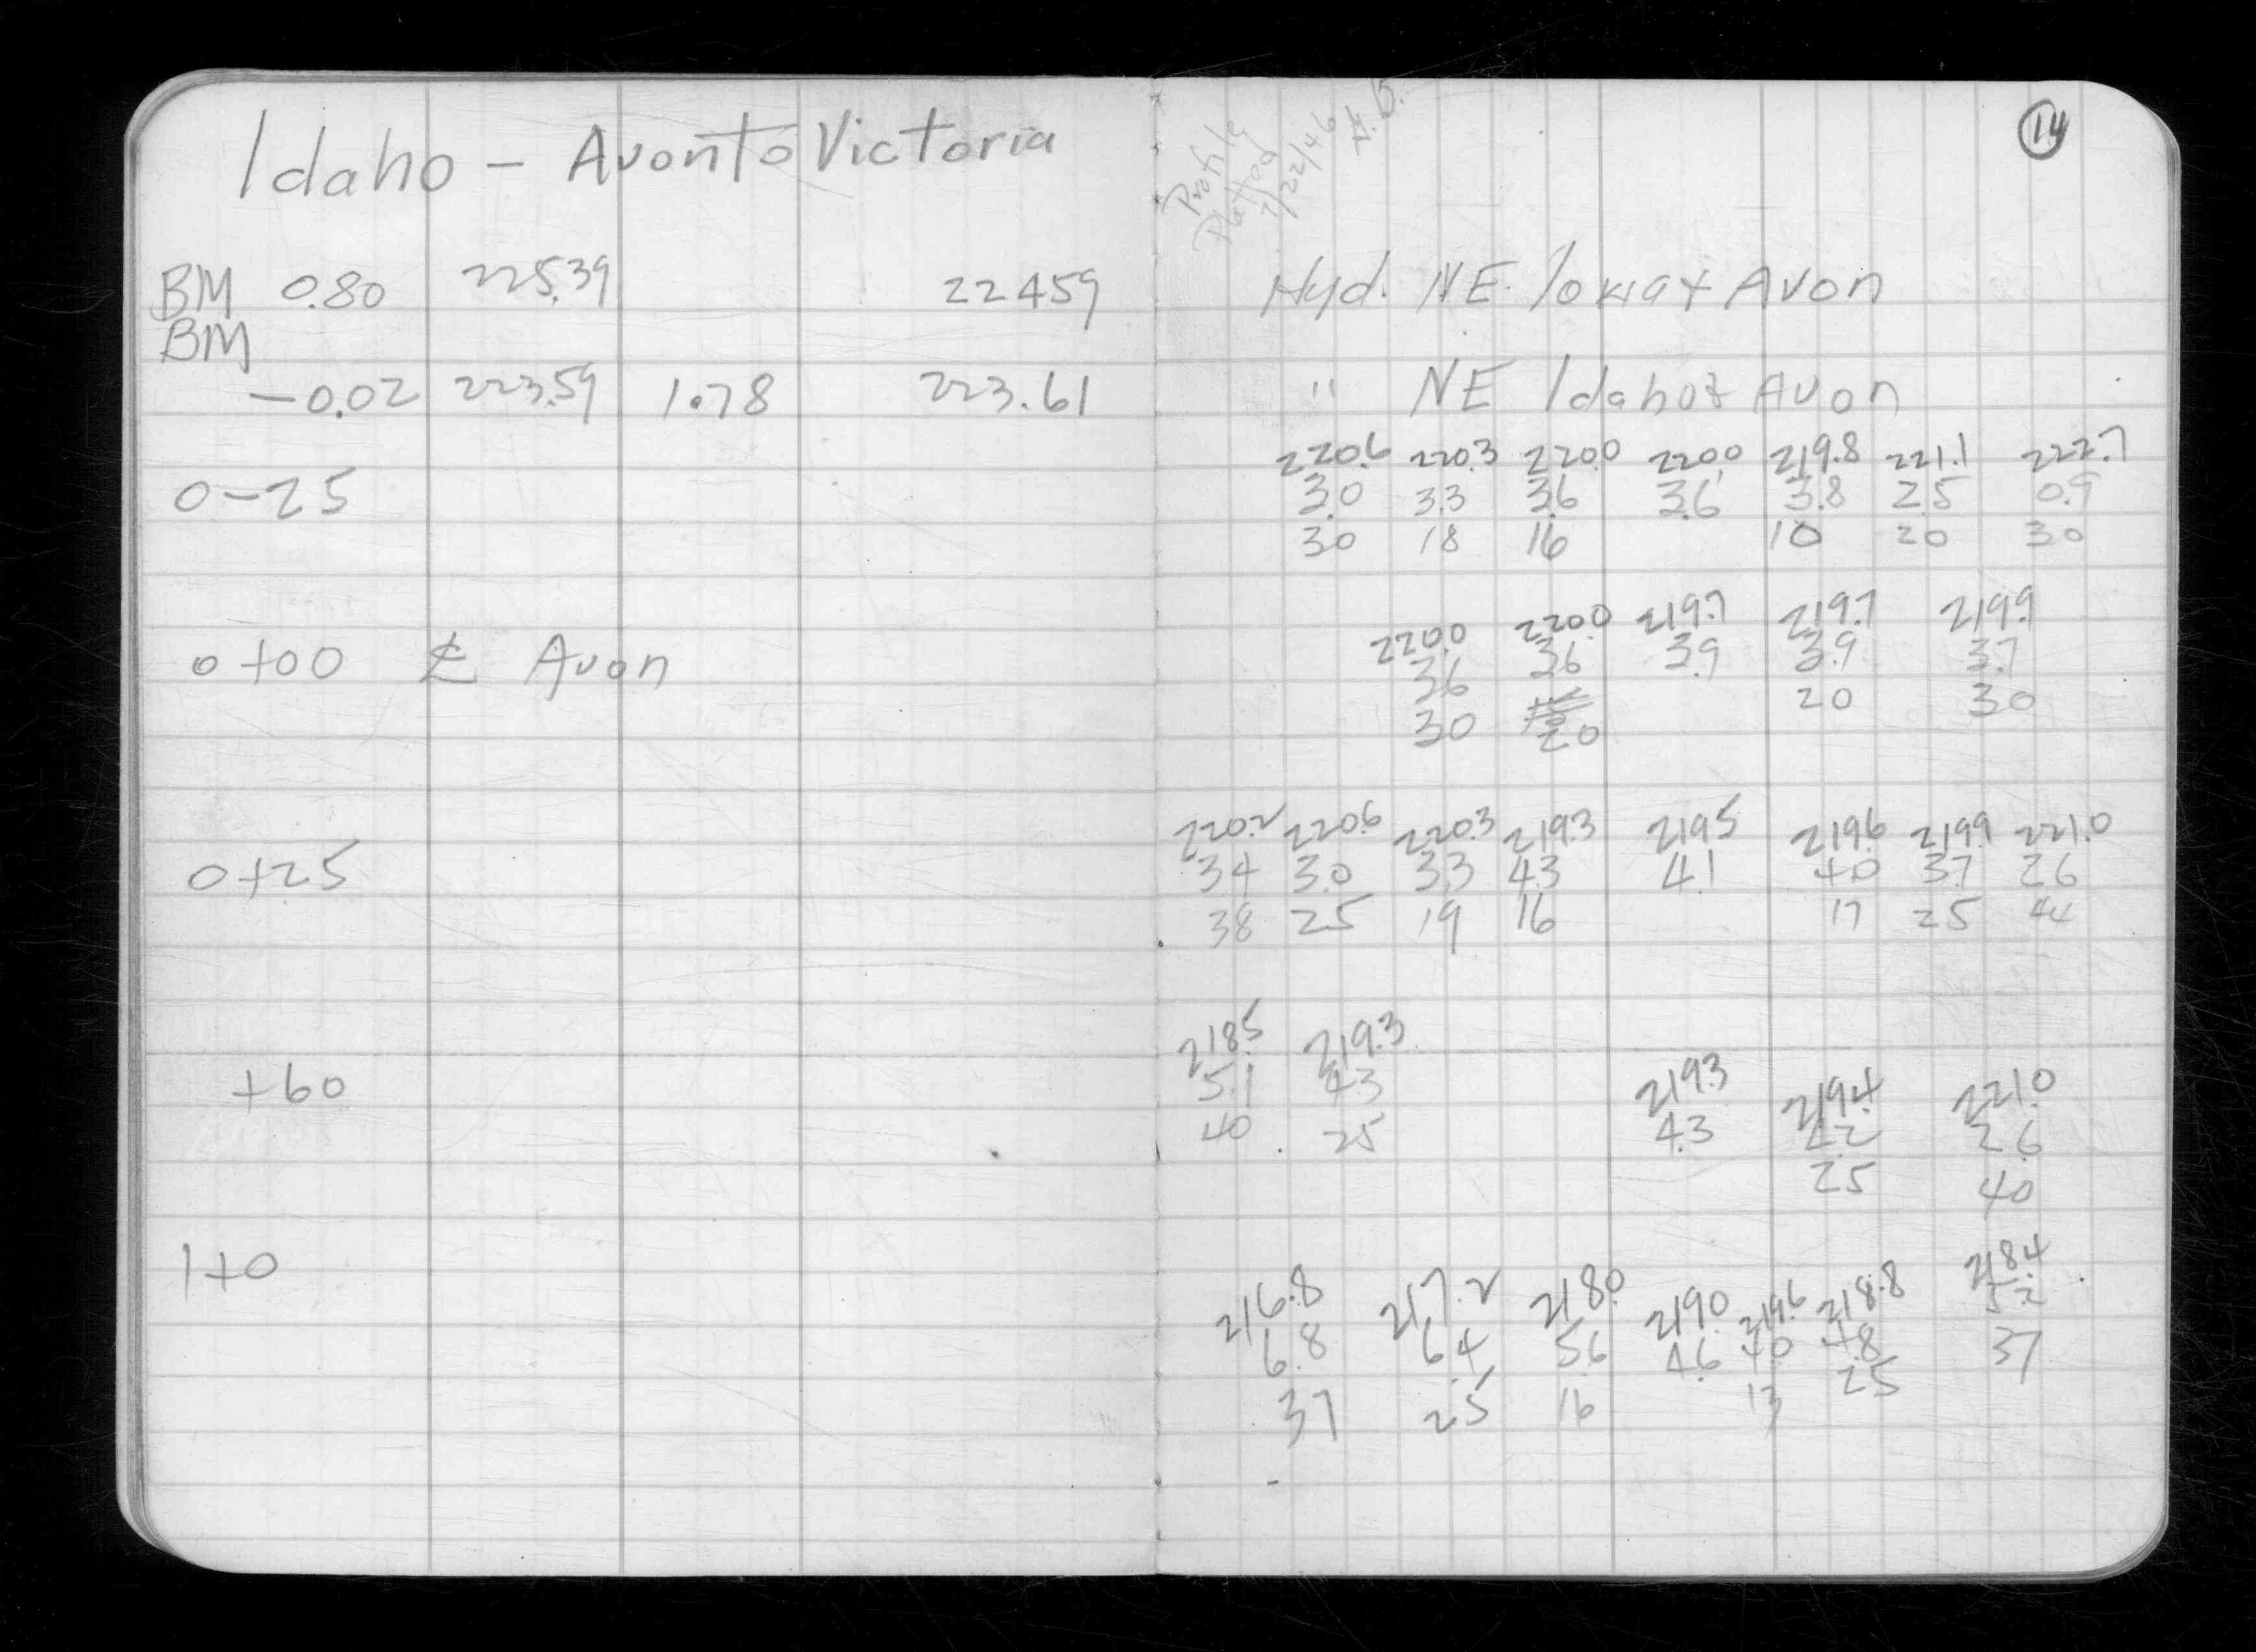 Idaho - Avon to Victoria
BM 0.80 225.39 224.59
BM
-0.02 223.59 1.78 223.61
0-25
0+00 ℄ Avon
0+25
+60
1+0
Profile
Plotted
2/22/46
14
Hyd. NE. Iowa + Avon
" NE Idaho + Avon
220.6 220.3 220.0 220.0 219.8 221.1 222.7
3.0 3.3 3.6 3.6 3.8 2.5 0.9
30 18 16 10 20 30
220.0 220.0 219.7 219.7 219.9
3.6 3.6 3.9 3.9 3.7
30 20 20 30
220.2 220.6 220.3 219.3 219.5 219.6 219.9 221.0
3.4 3.0 3.3 4.3 4.1 4.0 3.7 2.6
38 25 19 16 17 25 44
218.5 219.3 219.3 219.4 221.0
5.1 4.3 4.3 4.2 2.6
40 25 25 40
216.8 217.2 218.0 219.0 219.6 218.8 218.4
6.8 6.4 5.6 4.6 4.0 4.8 5.2
37 25 16 13 25 37